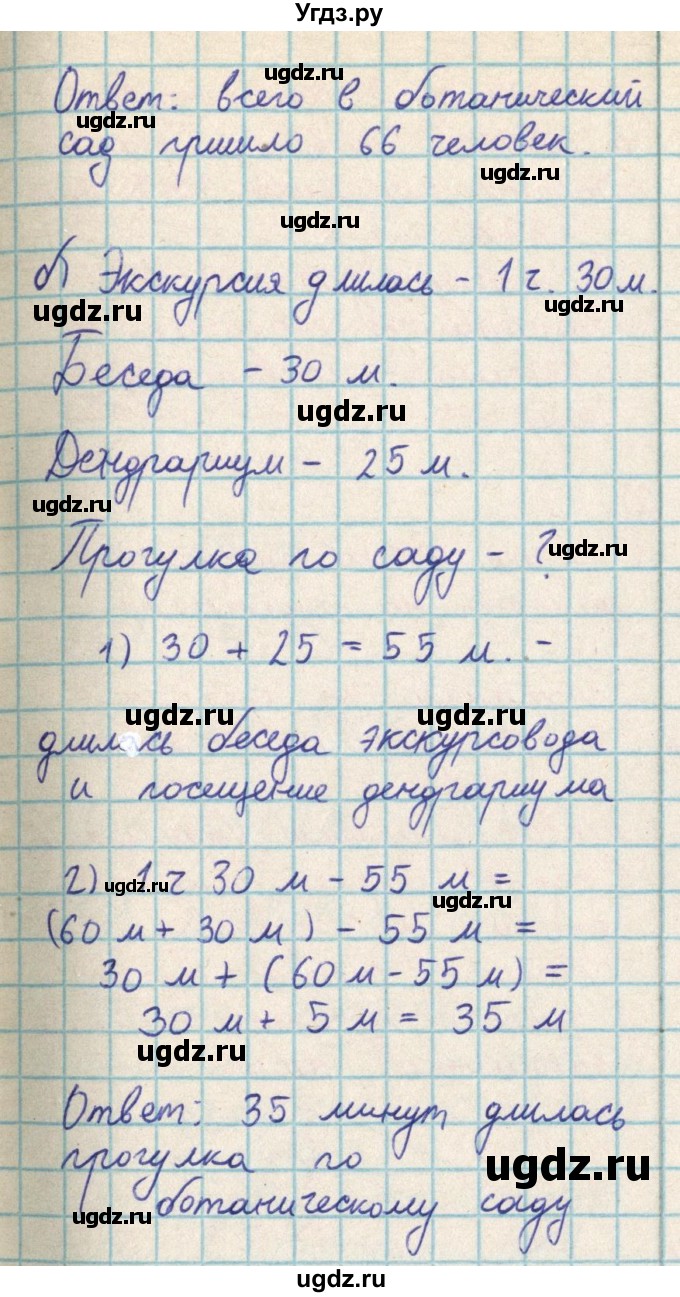 Угдз.ру
Ответ: всего в ботанический
сад пришло 66 человек.
б) Экскурсия длилась - 1 ч. 30 м.
Беседа - 30 м.
Дендрариум - 25 м.
Прогулка по саду - ?
1) 30 + 25 = 55 м. -
длилась беседа экскурсовода
и посещение дендрариума
2) 1 ч 30 м - 55 м =
(60 м + 30 м) - 55 м =
30 м + (60 м - 55 м) =
30 м + 5 м = 35 м
Ответ: 35 минут длилась
прогулка по
ботаническому саду
ugdz.ru